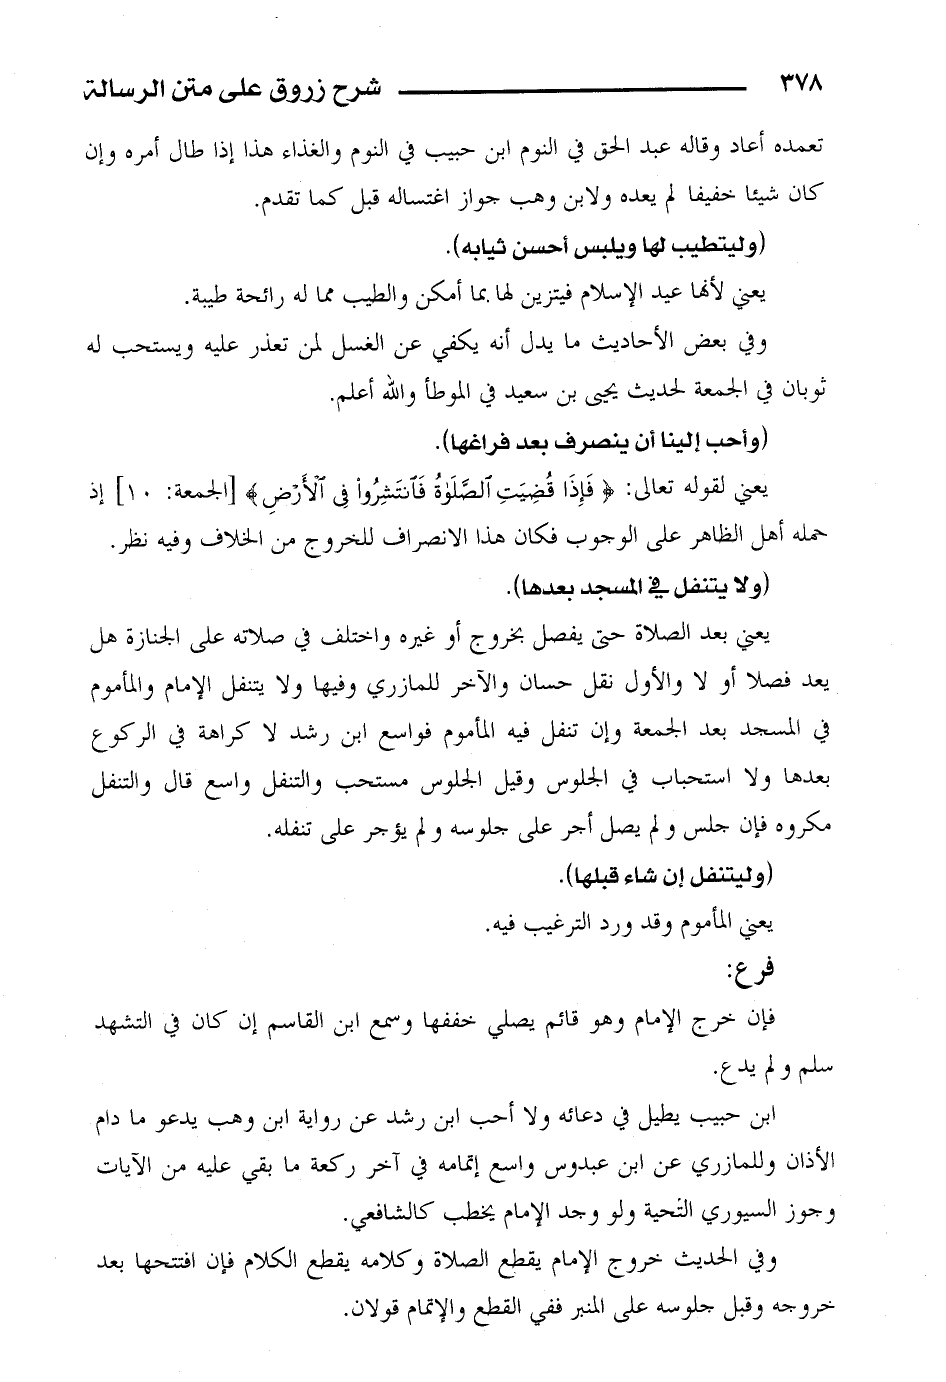 ٣٧٨ شرح زروق على متن الرسالة
تعمده أعاد وقاله عبد الحق في النوم ابن حبيب في النوم والغذاء هذا إذا طال أمره وإن
كان شيئا خفيفا لم يعده ولابن وهب جواز اغتساله قبل كما تقدم.
(وليتطيب لها ويلبس أحسن ثيابه).
يعني لأنها عيد الإسلام فيتزين لها بما أمكن والطيب مما له رائحة طيبة.
وفي بعض الأحاديث ما يدل أنه يكفي عن الغسل لمن تعذر عليه ويستحب له
ثوبان في الجمعة لحديث يحيى بن سعيد في الموطأ والله أعلم.
(وأحب إلينا أن ينصرف بعد فراغها).
يعني لقوله تعالى: ﴿ فَإِذَا قُضِيَتِ ٱلصَّلَوٰةُ فَٱنتَشِرُوا۟ فِى ٱلْأَرْضِ ﴾ [الجمعة: ١٠] إذ
حمله أهل الظاهر على الوجوب فكان هذا الانصراف للخروج من الخلاف وفيه نظر.
(ولا يتنفل في المسجد بعدها).
يعني بعد الصلاة حتى يفصل بخروج أو غيره واختلف في صلاته على الجنازة هل
يعد فصلا أو لا والأول نقل حسان والآخر للمازري وفيها ولا يتنفل الإمام والمأموم
في المسجد بعد الجمعة وإن تنفل فيه المأموم فواسع ابن رشد لا كراهة في الركوع
بعدها ولا استحباب في الجلوس وقيل الجلوس مستحب والتنفل واسع قال والتنفل
مكروه فإن جلس ولم يصل أجر على جلوسه ولم يؤجر على تنفله.
(وليتنفل إن شاء قبلها).
يعني المأموم وقد ورد الترغيب فيه.
فرع:
فإن خرج الإمام وهو قائم يصلي خففها وسمع ابن القاسم إن كان في التشهد
سلم ولم يدع.
ابن حبيب يطيل في دعائه ولا أحب ابن رشد عن رواية ابن وهب يدعو ما دام
الأذان وللمازري عن ابن عبدوس واسع إتمامه في آخر ركعة ما بقي عليه من الآيات
وجوز السيوري التحية ولو وجد الإمام يخطب كالشافعي.
وفي الحديث خروج الإمام يقطع الصلاة وكلامه يقطع الكلام فإن افتتحها بعد
خروجه وقبل جلوسه على المنبر ففي القطع والإتمام قولان.